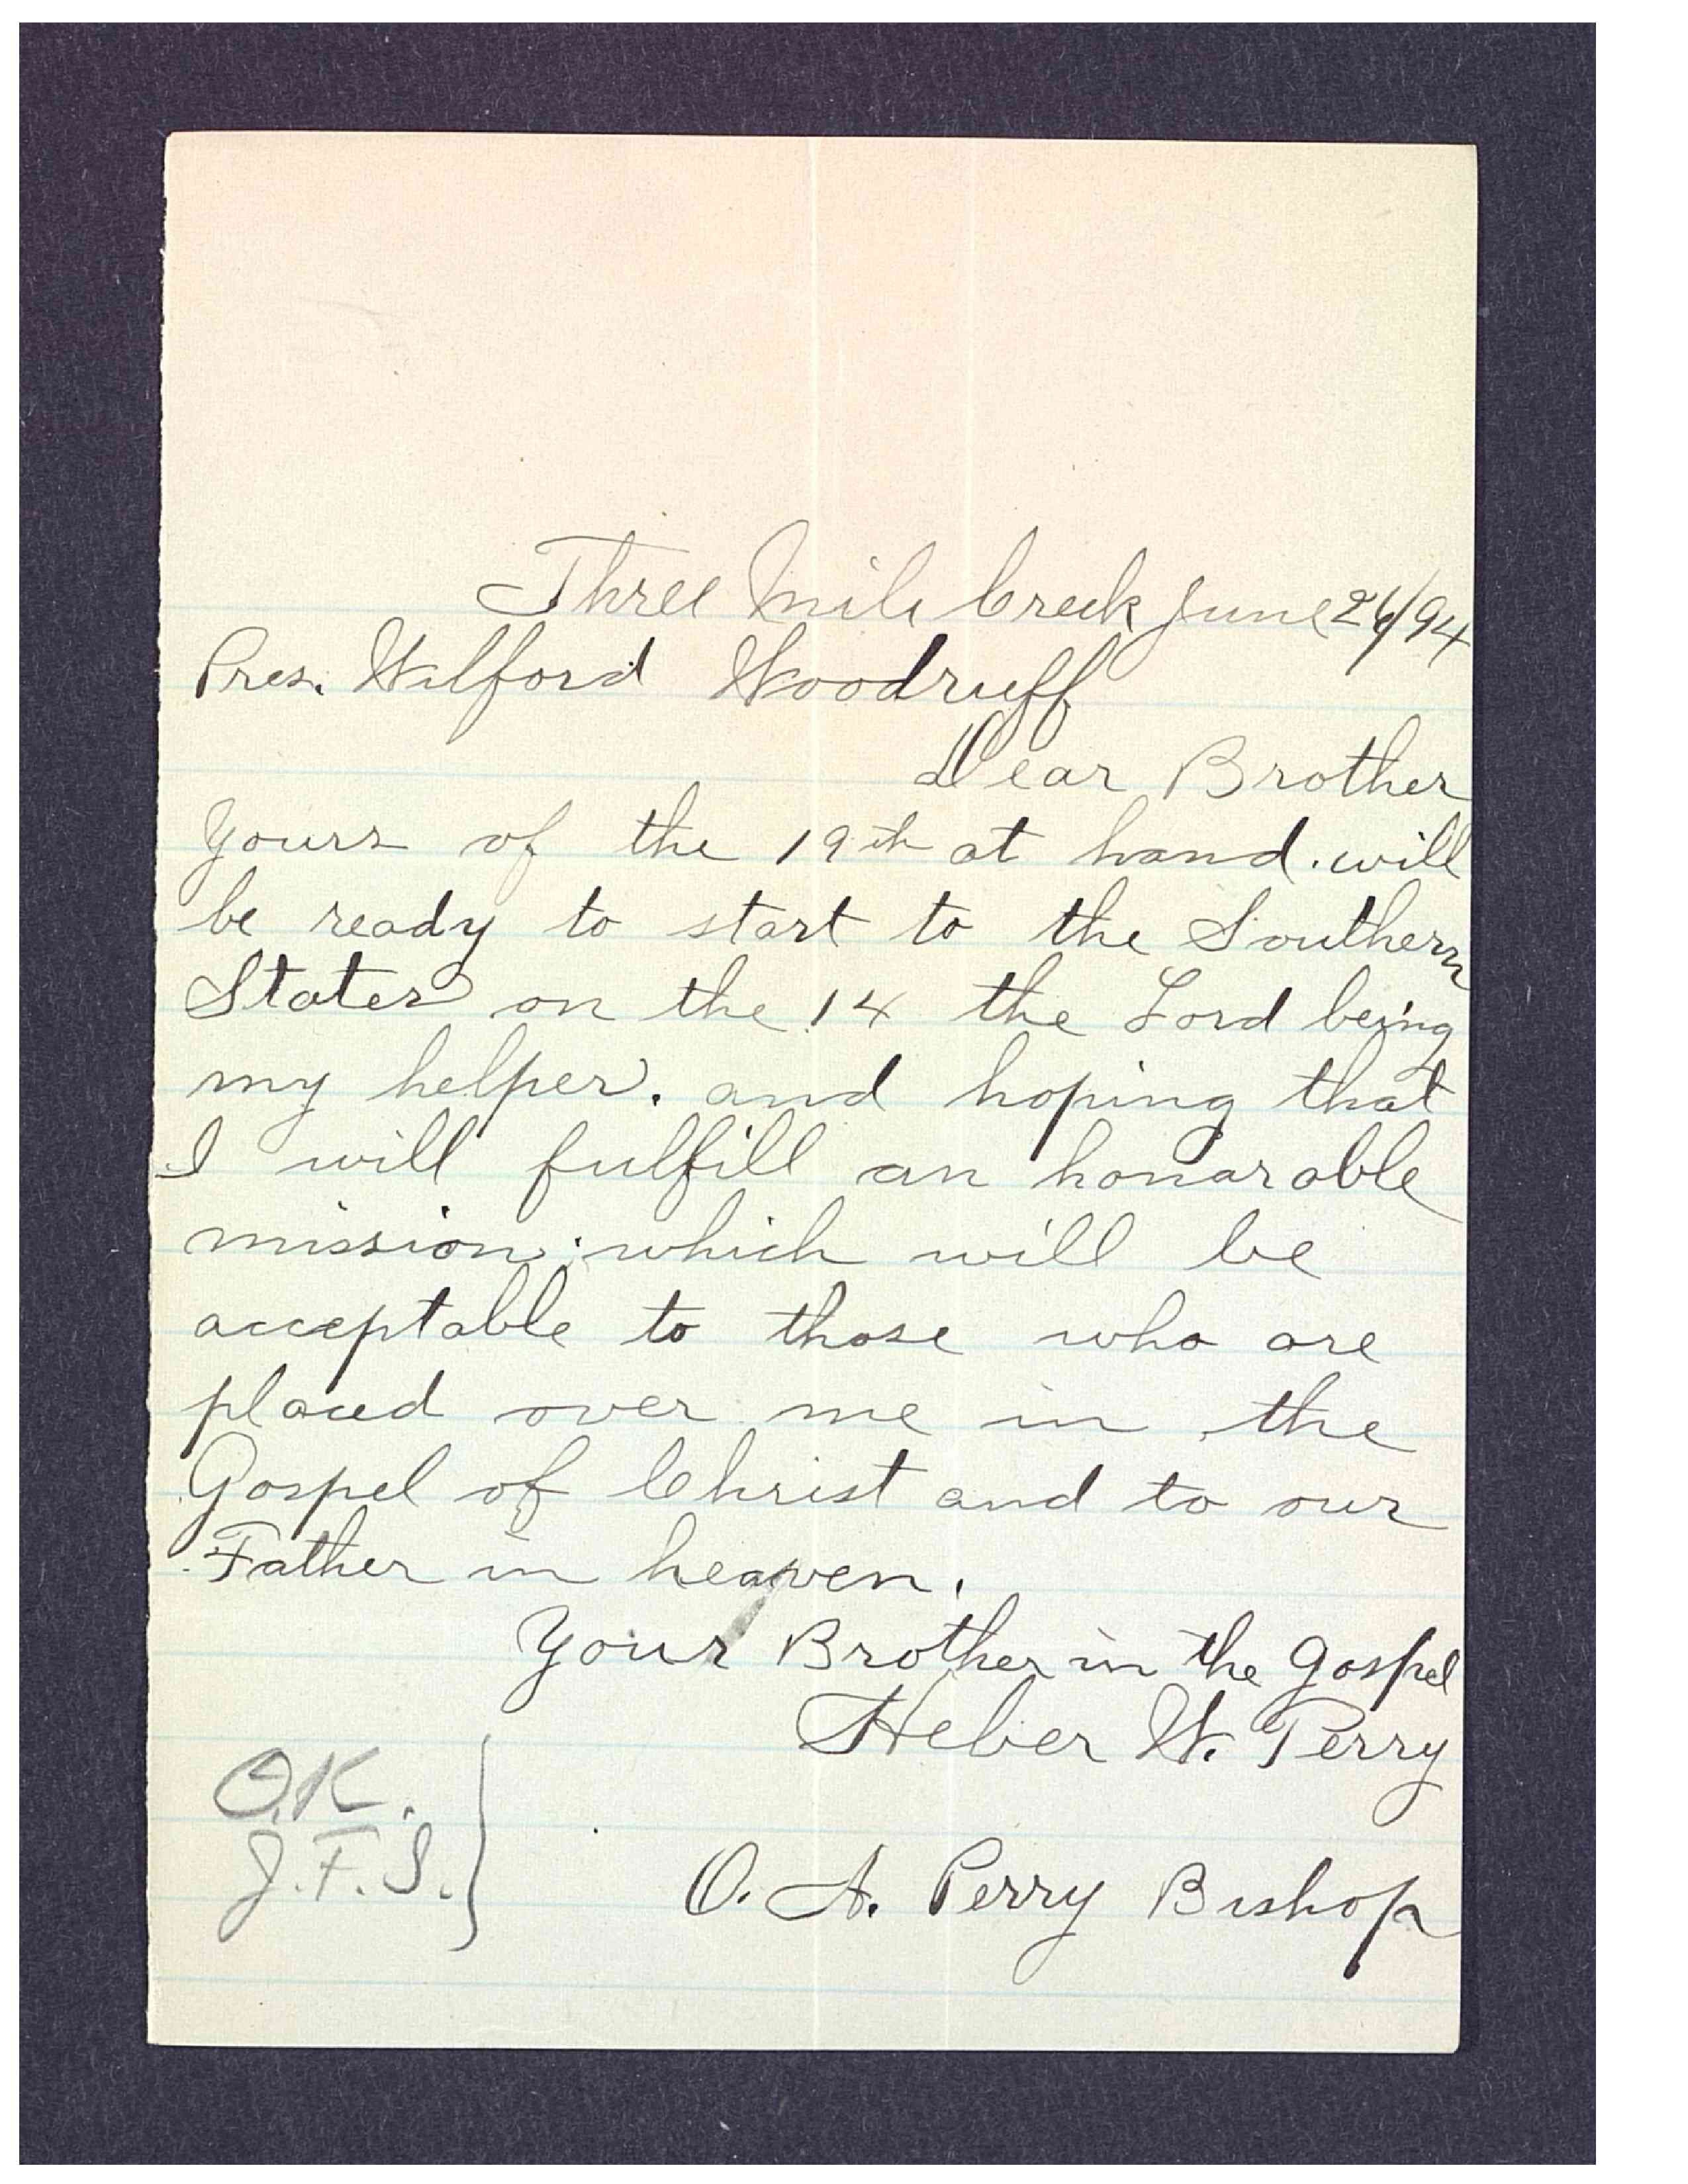 Three Mile Creek June 26/94
Pres. Wilford Woodruff
Dear Brother
Yours of the 19th at hand. will
be ready to start to the Southern
States on the 14 the Lord being
my helper. and hoping that
I will fulfill an honarable
mission; which will be
acceptable to those who are
placed over me in the
Gospel of Christ and to our
Father in heaven.
Your Brother in the Gospel
Heber W. Perry
O.K.
J.F.S.
O. A. Perry Bishop